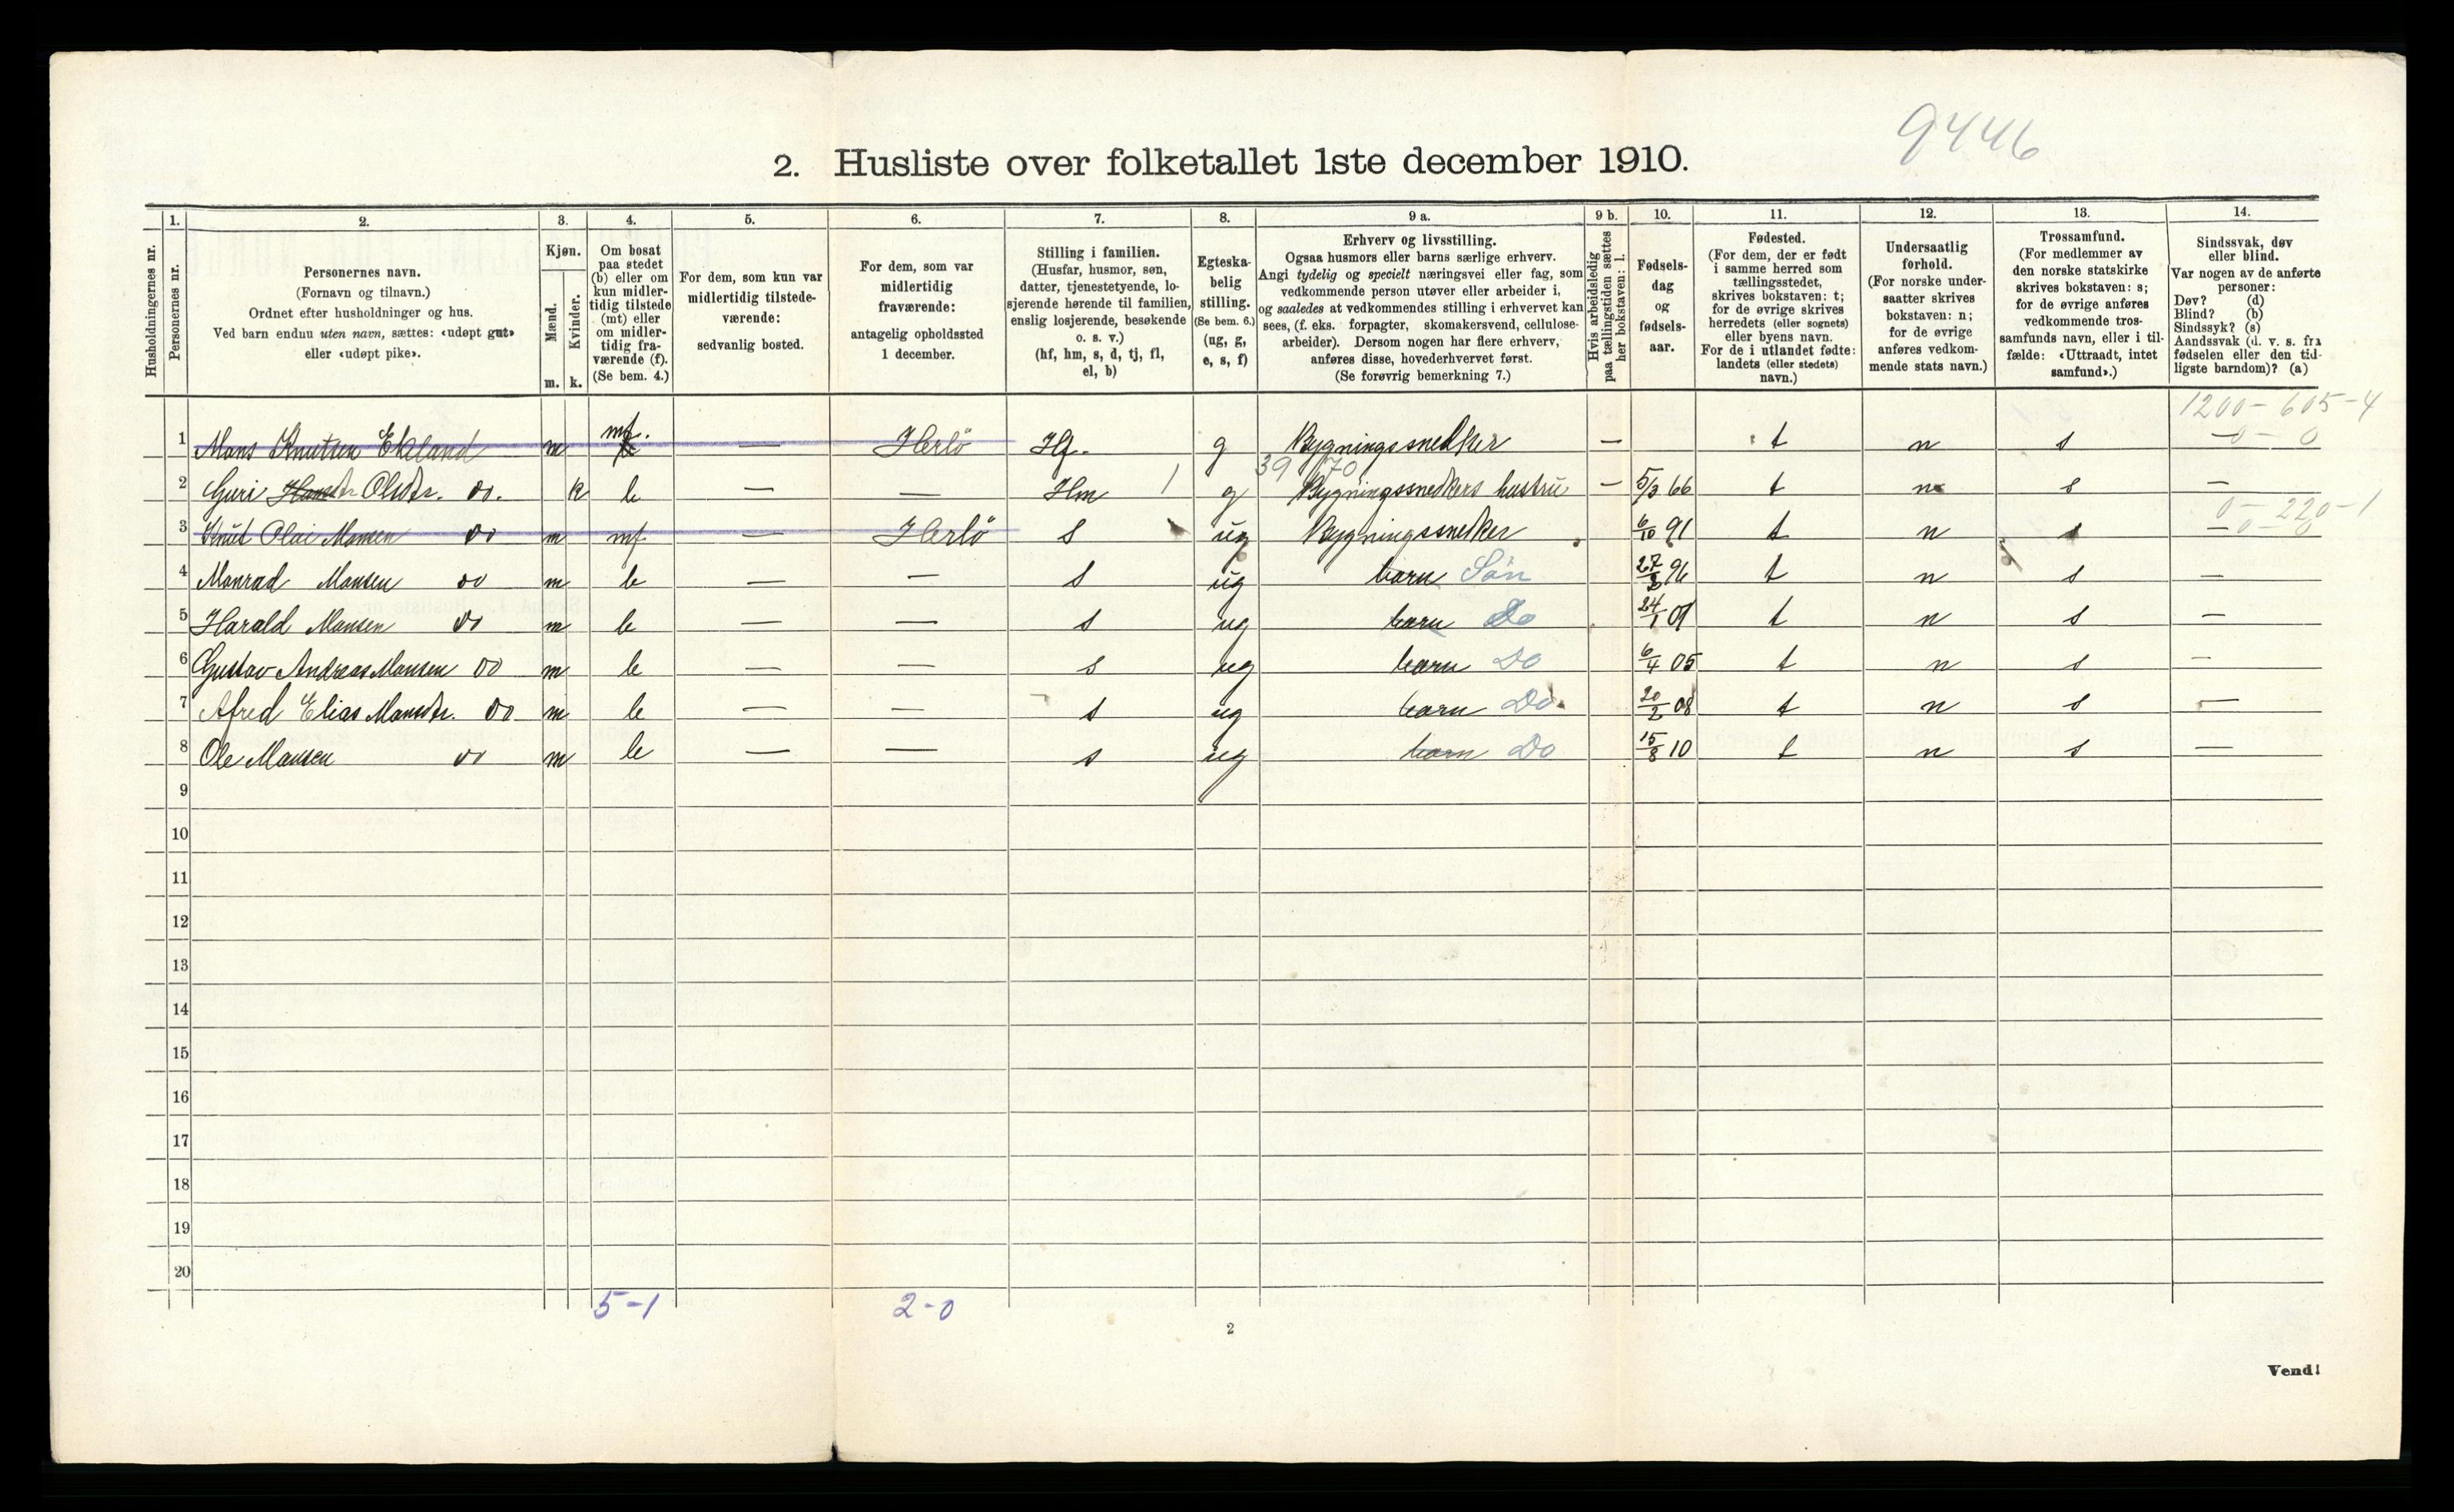 9446
2. Husliste over folketallet 1ste december 1910.
Husholdningernes nr.
1.
Personernes nr.
2.
Personernes navn.
(Fornavn og tilnavn.)
Ordnet efter husholdninger og hus.
Ved barn endnu uten navn, sættes: «udøpt gut»
eller «udøpt pike».
3.
Kjøn.
Mænd.
Kvinder.
m. k.
4.
Om bosat
paa stedet
(b) eller om
kun midler-
tidig tilstede
(mt) eller
om midler-
tidig fra-
værende (f).
(Se bem. 4.)
5.
For dem, som kun var
midlertidig tilstede-
værende:
sedvanlig bosted.
6.
For dem, som var
midlertidig
fraværende:
antagelig opholdssted
1 december.
7.
Stilling i familien.
(Husfar, husmor, søn,
datter, tjenestetyende, lo-
sjerende hørende til familien,
enslig losjerende, besøkende
o. s. v.)
(hf, hm, s, d, tj, fl,
el, b)
8.
Egteska-
belig
stilling.
(Se bem. 6.)
(ug, g,
e, s, f)
9 a.
Erhverv og livsstilling.
Ogsaa husmors eller barns særlige erhverv.
Angi tydelig og specielt næringsvei eller fag, som
vedkommende person utøver eller arbeider i,
og saaledes at vedkommendes stilling i erhvervet kan
sees, (f. eks. forpagter, skomakersvend, cellulose-
arbeider). Dersom nogen har flere erhverv,
anføres disse, hovederhvervet først.
(Se forøvrig bemerkning 7.)
9 b.
Hvis arbeidsledig
paa tællingstiden sættes
her bokstaven: l.
10.
Fødsels-
dag
og
fødsels-
aar.
11.
Fødested.
(For dem, der er født
i samme herred som
tællingsstedet,
skrives bokstaven: t;
for de øvrige skrives
herredets (eller sognets)
eller byens navn.
For de i utlandet fødte:
landets (eller stedets)
navn.)
12.
Undersaatlig
forhold.
(For norske under-
saatter skrives
bokstaven: n;
for de øvrige
anføres vedkom-
mende stats navn.)
13.
Trossamfund.
(For medlemmer av
den norske statskirke
skrives bokstaven: s;
for de øvrige anføres
vedkommende tros-
samfunds navn, eller i til-
fælde: «Uttraadt, intet
samfund».)
14.
Sindssvak, døv
eller blind.
Var nogen av de anførte
personer:
Døv? (d)
Blind? (b)
Sindssyk? (s)
Aandssvak (d. v. s. fra
fødselen eller den tid-
ligste barndom)? (a)
1200 - 605 - 4
1 Mons Knutsen Ekeland m mf. — Herlö Hf. g Bygningssnedker — t n s — 0 - 0
39 70
2 Guri Olsdtr. do. k b — — Hm 1 g Bygningssnedkers hustru — 5/3 66 t n s —
0 - 220 - 1
3 Knut Olai Monsen do m mf — Herlö s ug Bygningssnedker 6/10 91 t n s — 0 - 0
4 Monrad Monsen do m b — — s ug barn Sön 27/3 96 t n s —
5 Harald Monsen do m b — — s ug barn Do 24/1 01 t n s —
6 Gustav Andreas Monsen do m b — — s ug barn Do 6/4 05 t n s —
7 Afred Elias Monsdtr. do m b — — s ug barn Do. 20/2 08 t n s —
8 Ole Monsen do m b — — s ug barn Do 15/8 10 t n s —
9
10
11
12
13
14
15
16
17
18
19
20
5-1 2-0
2
Vend!